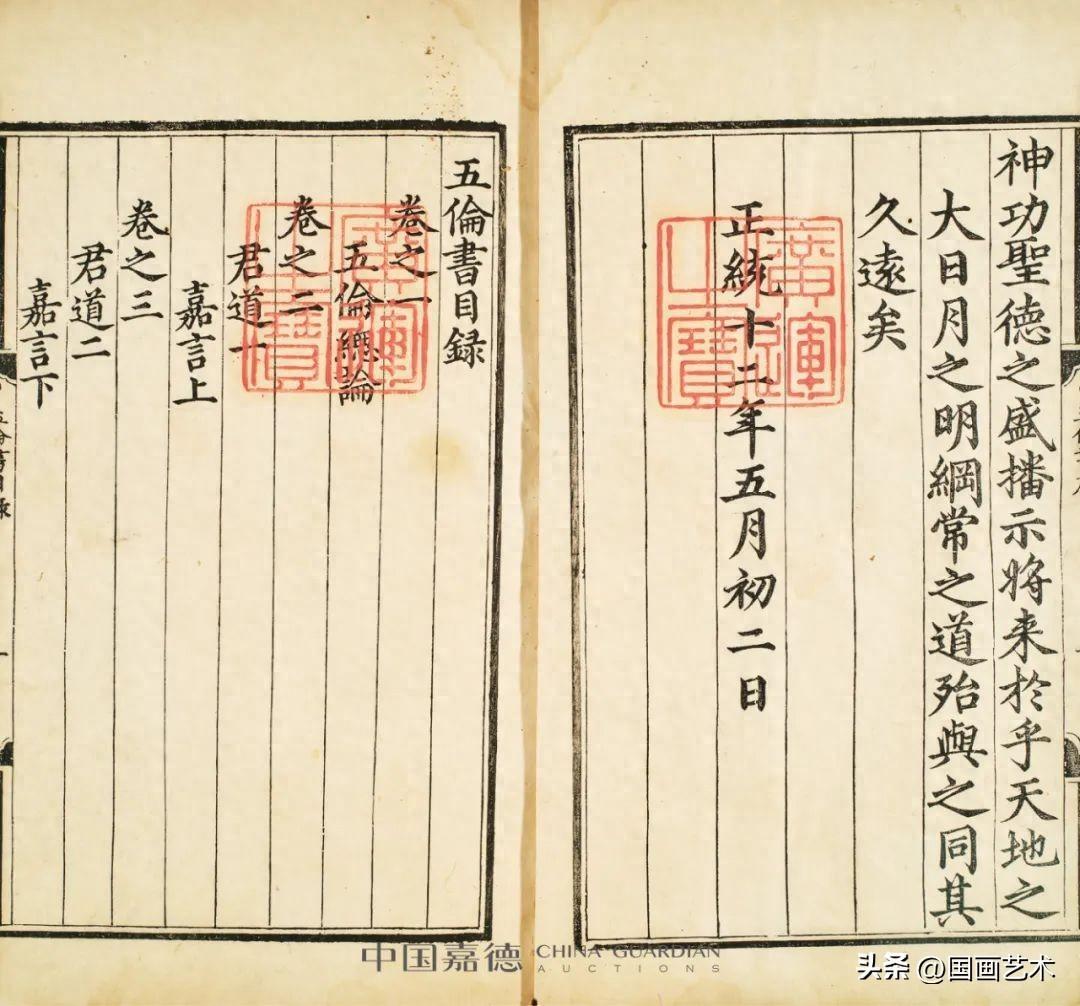 神功聖德之盛播示將来於乎天地之
大日月之明綱常之道殆與之同其
久遠矣
正統十二年五月初二日
廣運之寶
五倫書目録
卷之一
五倫總論
卷之二
君道一
嘉言上
卷之三
君道二
嘉言下
廣運之寶
中国嘉德 CHINA GUARDIAN
AUCTIONS
头条 @国画艺术